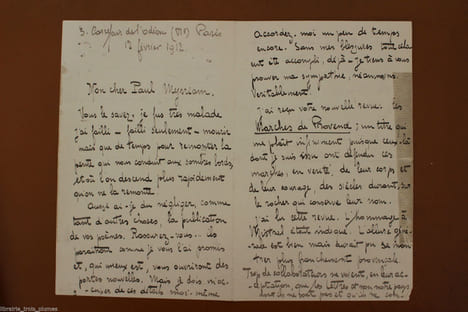 3. Carrefour de l'Odéon (VIe) Paris
13 février 1912.
Mon cher Paul Myrriam,
Vous le savez, je fus très malade
j'ai failli - failli seulement - mourir
mais que de temps pour remonter la
pente qui nous conduit aux sombres bords,
et où l'on descend plus rapidement
qu'on ne la remonte.
Aussi ai-je dû négliger, comme
tant d'autres choses, la publication
de vos poèmes. Rassurez-vous... ils
paraîtront comme je vous l'ai promis
et, qui mieux est, vous ouvriront des
portes nouvelles. Mais je dois m'oc-
cuper de ces détails moi-même
accordez-moi un peu de temps
encore. Sans mes blessures tout cela
eut été accompli, déjà - je tiens à vous
prouver ma sympathie, néanmoins,
véritablement!
J'ai reçu votre nouvelle revue: Les
Marches de Provence; un titre qui
me plaît infiniment puisque ceux-là
dont je suis issu ont défendu ces
marches, en vérité, de leur corps et
de leur courage, des siècles durant, sur
le rocher qui conserve leur nom.
J'ai lu cette revue. L'hommage à
Mistral était indiqué. L'allure géné-
rale est bien mais devrait se mon-
trer plus franchement provençale.
Trop de collaborateurs se
que les lettres
librairie_trois_plumes